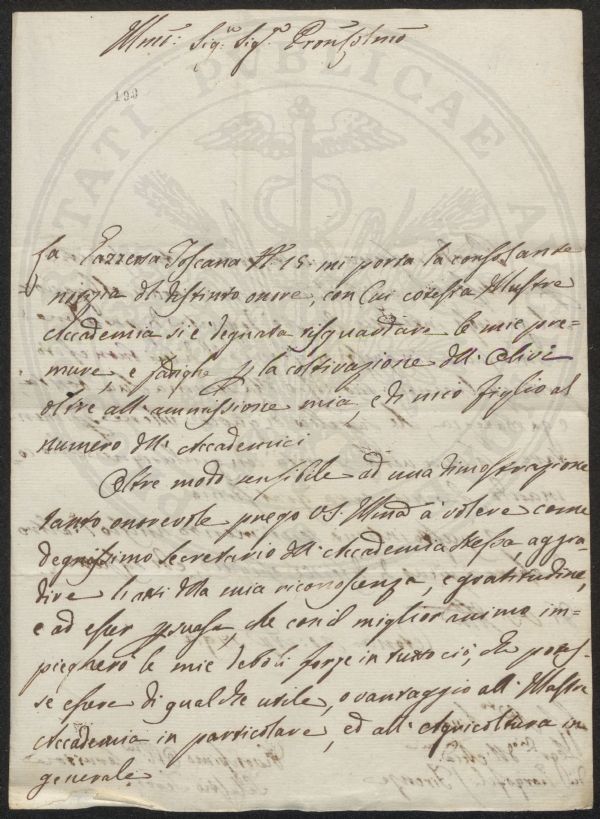 Illmo: Sigr Sigr Pron Colmo
199
La Gazzetta Toscana N° 15: mi porta la consolante
notizia del distinto onore, con cui cotesta Illustre
Accademia si è degnata risguardare le mie pre-
mure e fatighe p la coltivazione dell' Olivi
oltre all' ammissione mia, e di mio figlio al
numero dell' Accademici
Oltre modo sensibile ad una dimostrazione
tanto onorevole prego VS. Illma a volere come
degnissimo secretario dell' Accademia stessa, aggra-
dire li atti della mia riconoscenza, e gratitudine,
e ad esser psuasa, che con il miglior animo im-
piegherò le mie deboli forze in tutto ciò, che potes-
se essere di qualche utile, o vantaggio all' Illustre
Accademia in particolare, ed all' Agricoltura in
generale